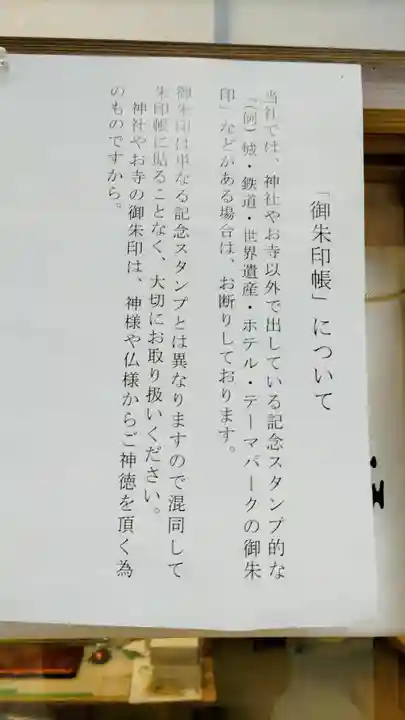 「御朱印帳」について
当社では、神社やお寺以外で出している記念スタンプ的な
「(例) 城・鉄道・世界遺産・ホテル・テーマパークの御朱
印」などがある場合は、お断りしております。
御朱印は単なる記念スタンプとは異なりますので混同して
朱印帳に貼ることなく、大切にお取り扱いください。
神社やお寺の御朱印は、神様や仏様からご神徳を頂く為
のものですから。